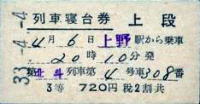 列車寝台券 上段
33.-4.-4
4月6日上野駅から乗車
20時10分発
第北斗列車第4号車308番
3等 720円税2割共